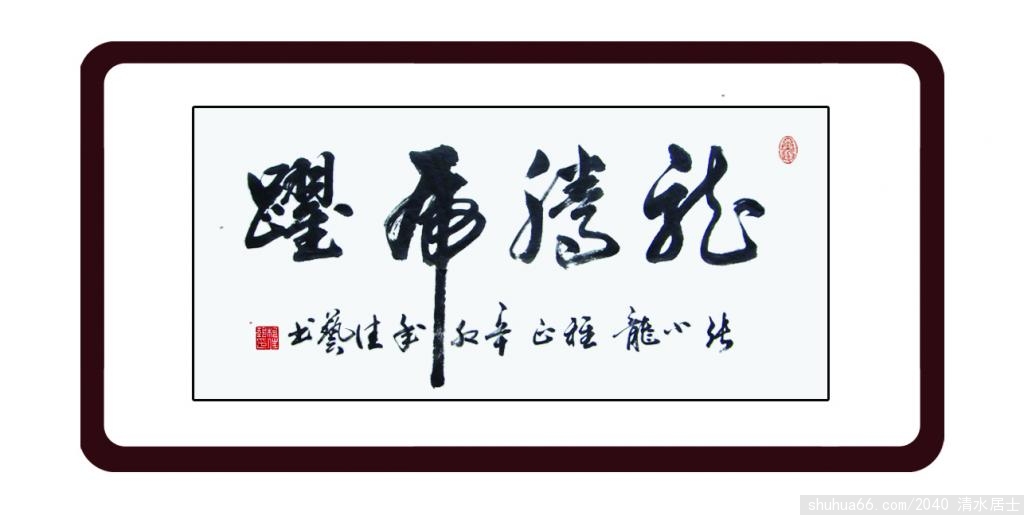 龍騰虎躍
張小龍雅正辛卯年佳藝书
shuhua66.com/2040 清水居士